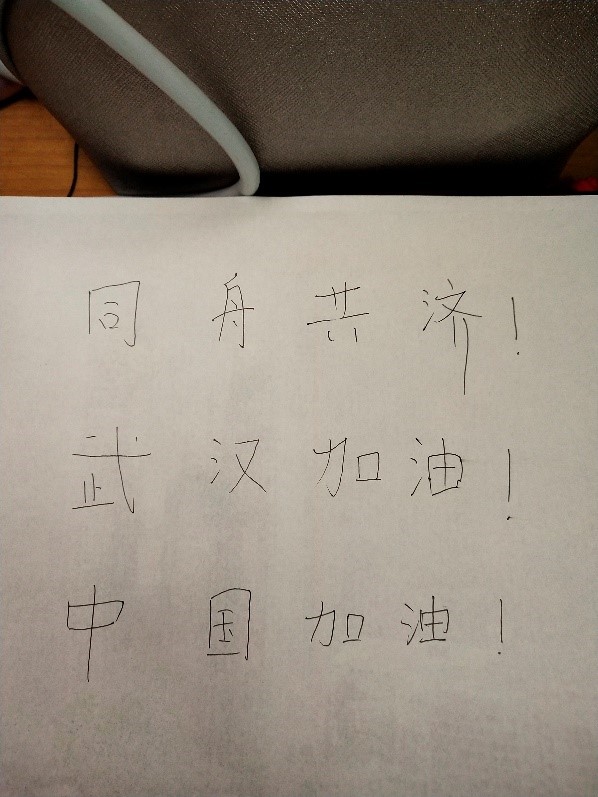 同舟共济！
武汉加油！
中国加油！